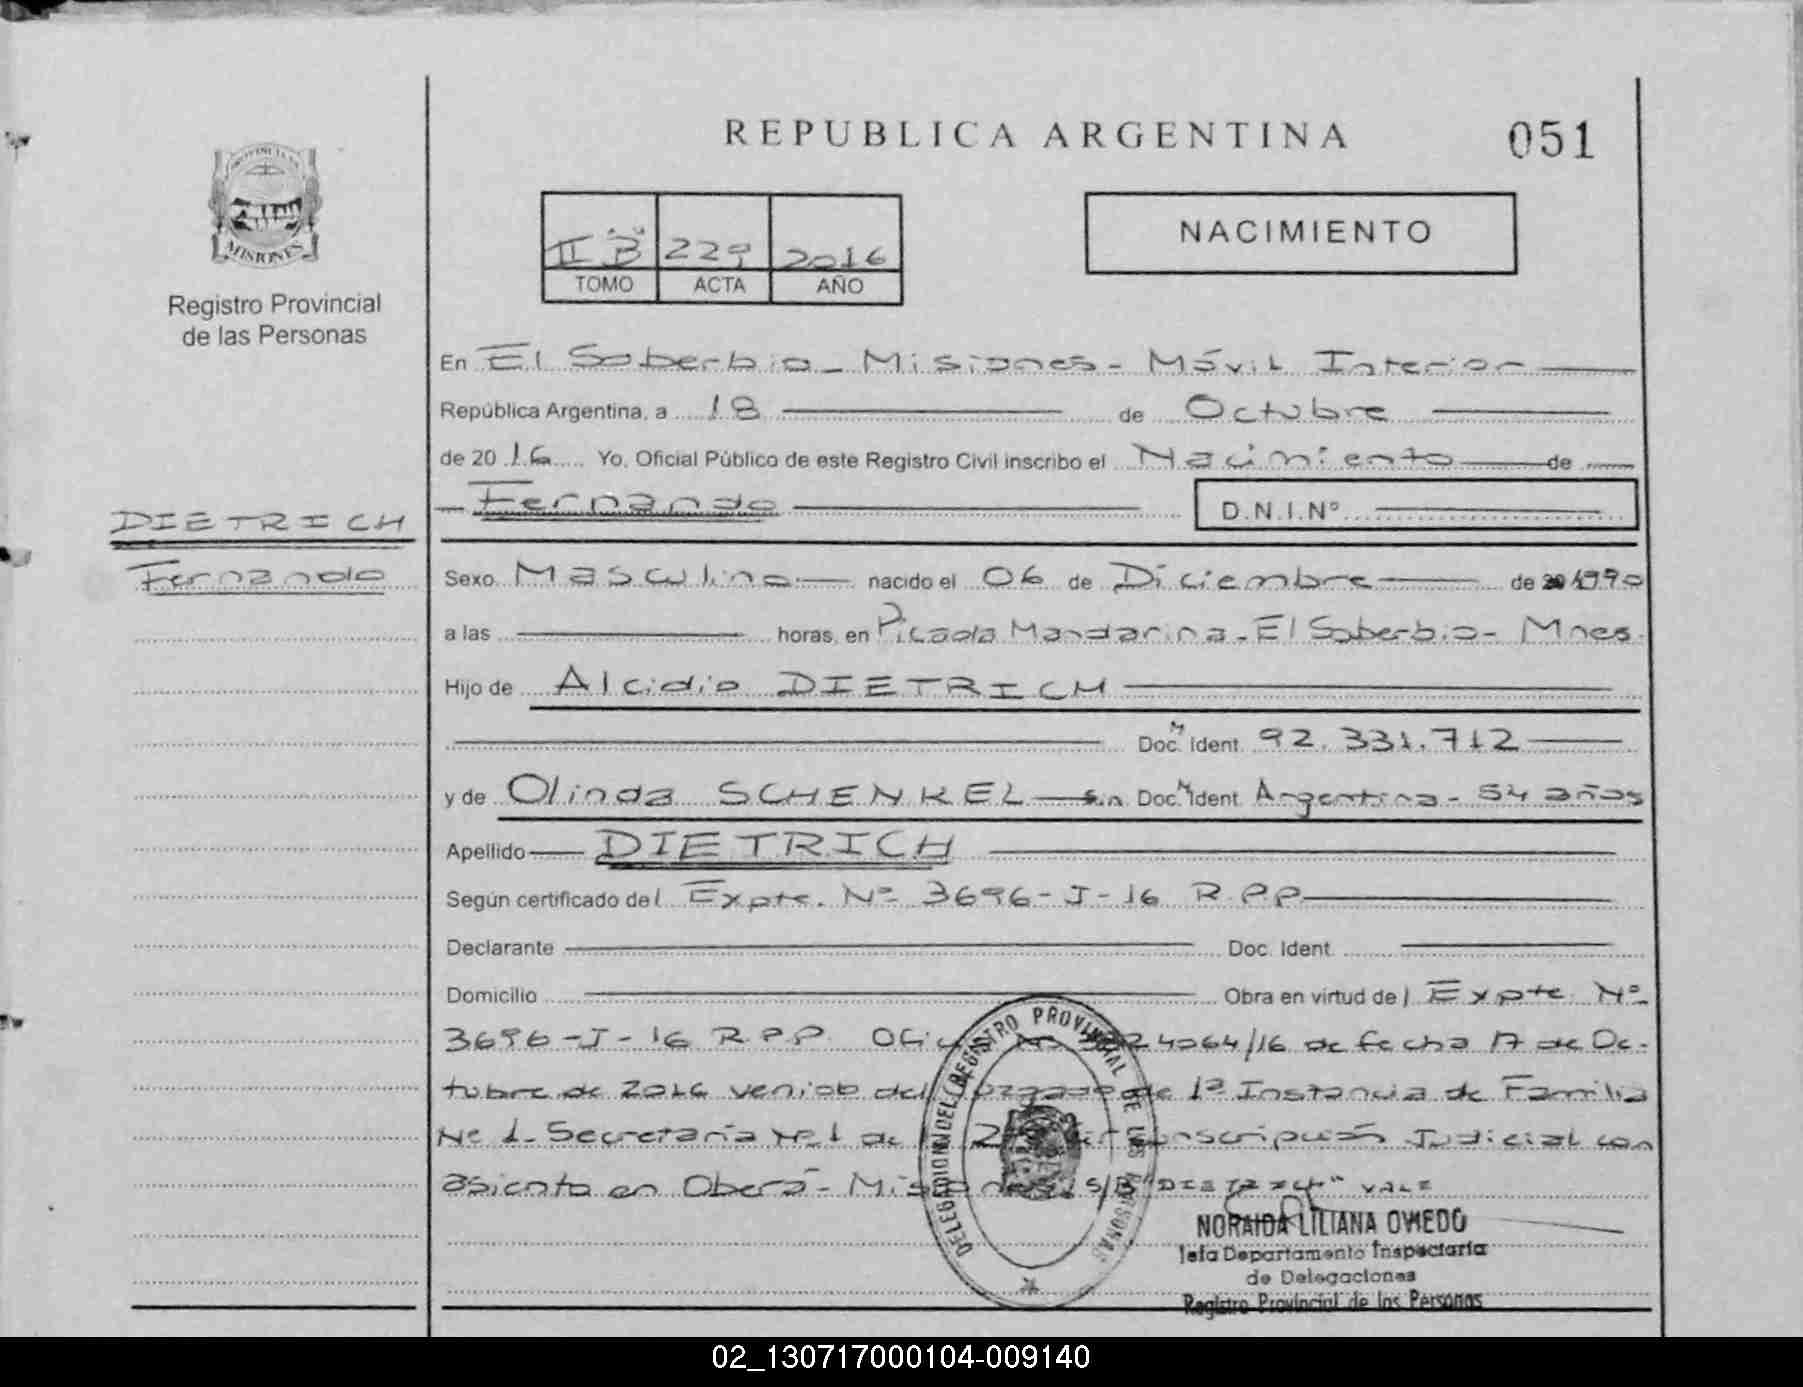 REPUBLICA ARGENTINA
051
PROVINCIA DE
MISIONES
Registro Provincial
de las Personas
II "B" 229 2016
TOMO ACTA AÑO
NACIMIENTO
En El Soberbio - Misiones - Móvil Interior
República Argentina, a 18 de Octubre
de 2016 Yo, Oficial Público de este Registro Civil inscribo el Nacimiento de
Fernando D.N.I.Nº
DIETRICH
Fernando
Sexo Masculino nacido el 06 de Diciembre de 1990
a las horas, en Picada Mandarina - El Soberbio - Mnes.
Hijo de Alcidio DIETRICH
Doc. Ident. 92.331.712
y de Olinda SCHENKEL sin Doc. Ident. Argentina - 54 años
Apellido DIETRICH
Según certificado del Expte. Nº 3696-J-16 R.P.P.
Declarante Doc. Ident.
Domicilio Obra en virtud del Expte Nº
3696-J-16 R.P.P. 24064/16 de fecha 17 de Oc-
tubre de 2016 venido del Juzgado de 1ª Instancia de Familia
Nº 1 - Secretaría Nº 1 de la 2ª Circunscripción Judicial con
asiento en Oberá - Misiones, S/B "DIETRICH" VALE
DELEGACION DEL REGISTRO PROVINCIAL DE LAS PERSONAS
NORAIDA LILIANA OVIEDO
Jefa Departamento Inspectoría
de Delegaciones
Registro Provincial de las Personas
02_130717000104-009140